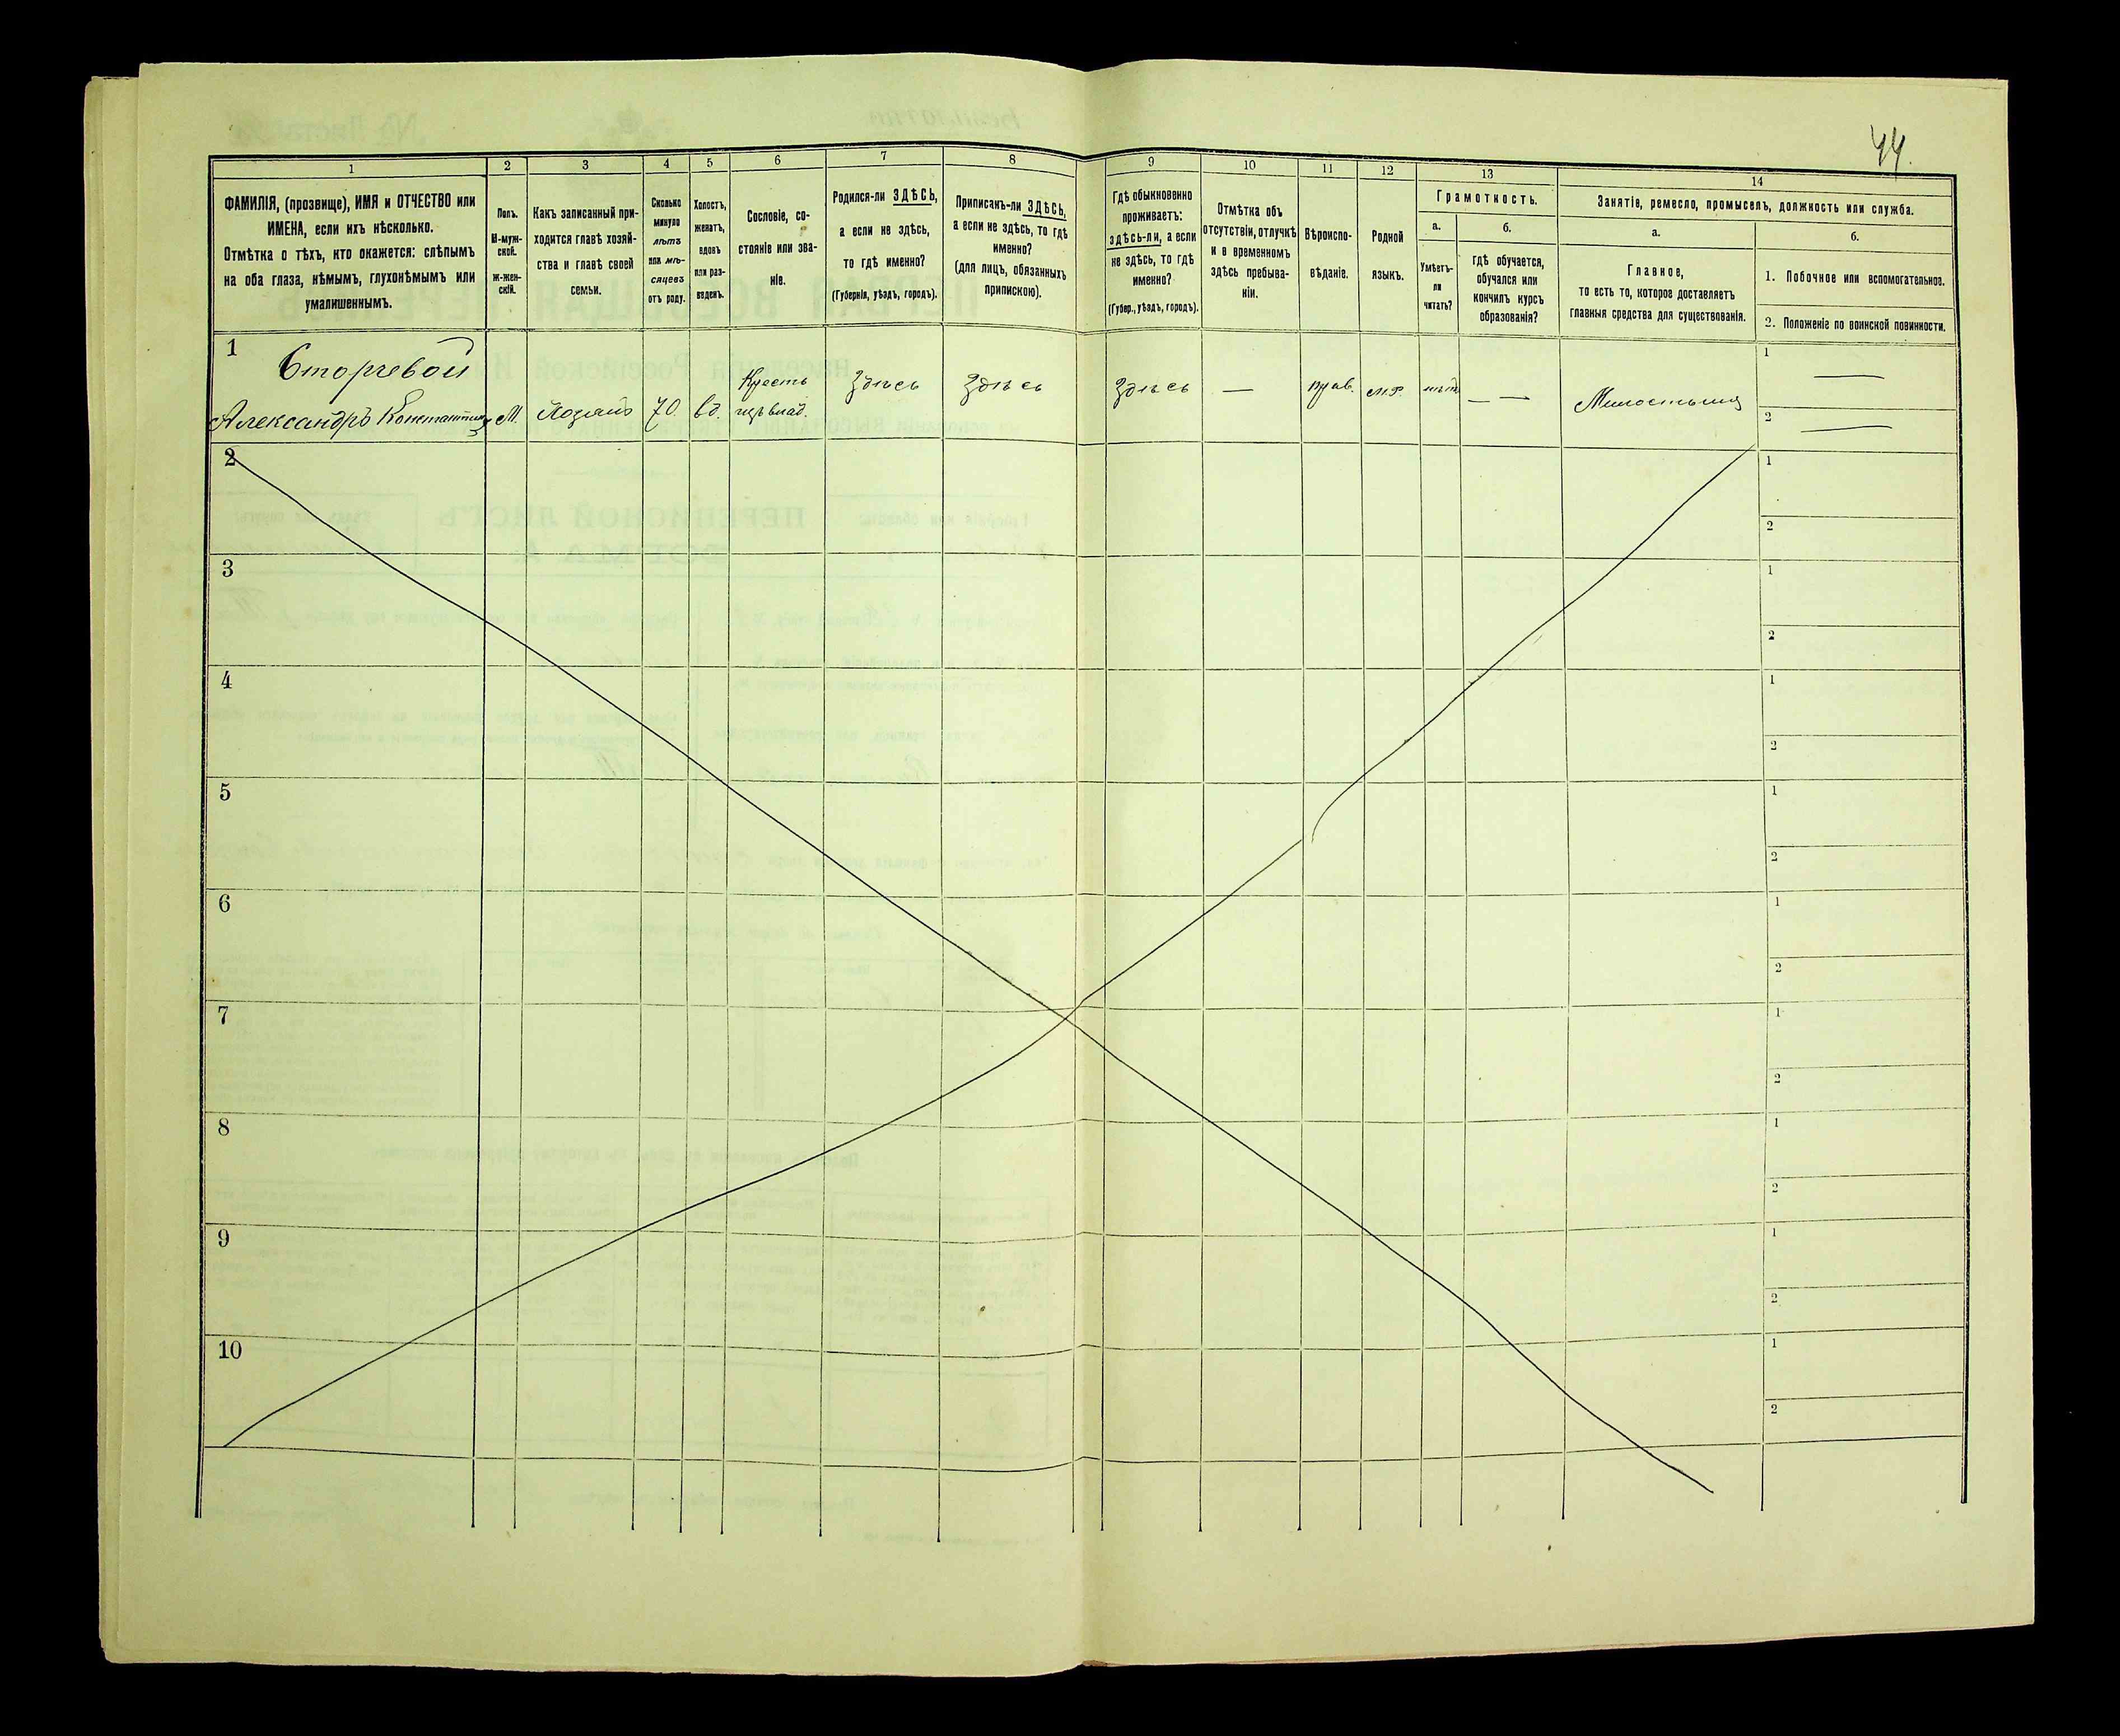 44.
1
2
3
4
5
6
7
8
9
10
11
12
13
14
ФАМИЛІЯ, (прозвище), ИМЯ и ОТЧЕСТВО или
ИМЕНА, если ихъ нѣсколько.
Отмѣтка о тѣхъ, кто окажется: слѣпымъ
на оба глаза, нѣмымъ, глухонѣмымъ или
умалишеннымъ.
Полъ.
М-муж-
ской.
ж-жен-
скій.
Какъ записанный при-
ходится главѣ хозяй-
ства и главѣ своей
семьи.
Сколько
минуло
лѣтъ
или мѣ-
сяцевъ
отъ роду.
Холостъ,
женатъ,
вдовъ
или раз-
веденъ.
Сословіе, со-
стояніе или зва-
ніе.
Родился-ли ЗДѢСЬ,
а если не здѣсь,
то гдѣ именно?
(Губернія, уѣздъ, городъ).
Приписанъ-ли ЗДѢСЬ,
а если не здѣсь, то гдѣ
именно?
(для лицъ, обязанныхъ
припискою).
Гдѣ обыкновенно
проживаетъ:
здѣсь-ли, а если
не здѣсь, то гдѣ
именно?
(Губер., уѣздъ, городъ).
Отмѣтка объ
отсутствіи, отлучкѣ
и о временномъ
здѣсь пребыва-
ніи.
Вѣроиспо-
вѣданіе.
Родной
языкъ.
Грамотность.
а.
Умѣетъ-
ли
читать?
б.
гдѣ обучается,
обучался или
кончилъ курсъ
образованія?
Занятіе, ремесло, промыселъ, должность или служба.
а.
Главное,
то есть то, которое доставляетъ
главныя средства для существованія.
б.
1. Побочное или вспомогательное.
2. Положеніе по воинской повинности.
1
Александръ
М.
70.
вд.
Крестъ
изъ влад.
Здѣсь
Здѣсь
Здѣсь
—
прав.
м.р.
нѣтъ
— —
1 —
2 —
2
1
2
3
1
2
4
1
2
5
1
2
6
1
2
7
1
2
8
1
2
9
1
2
10
1
2